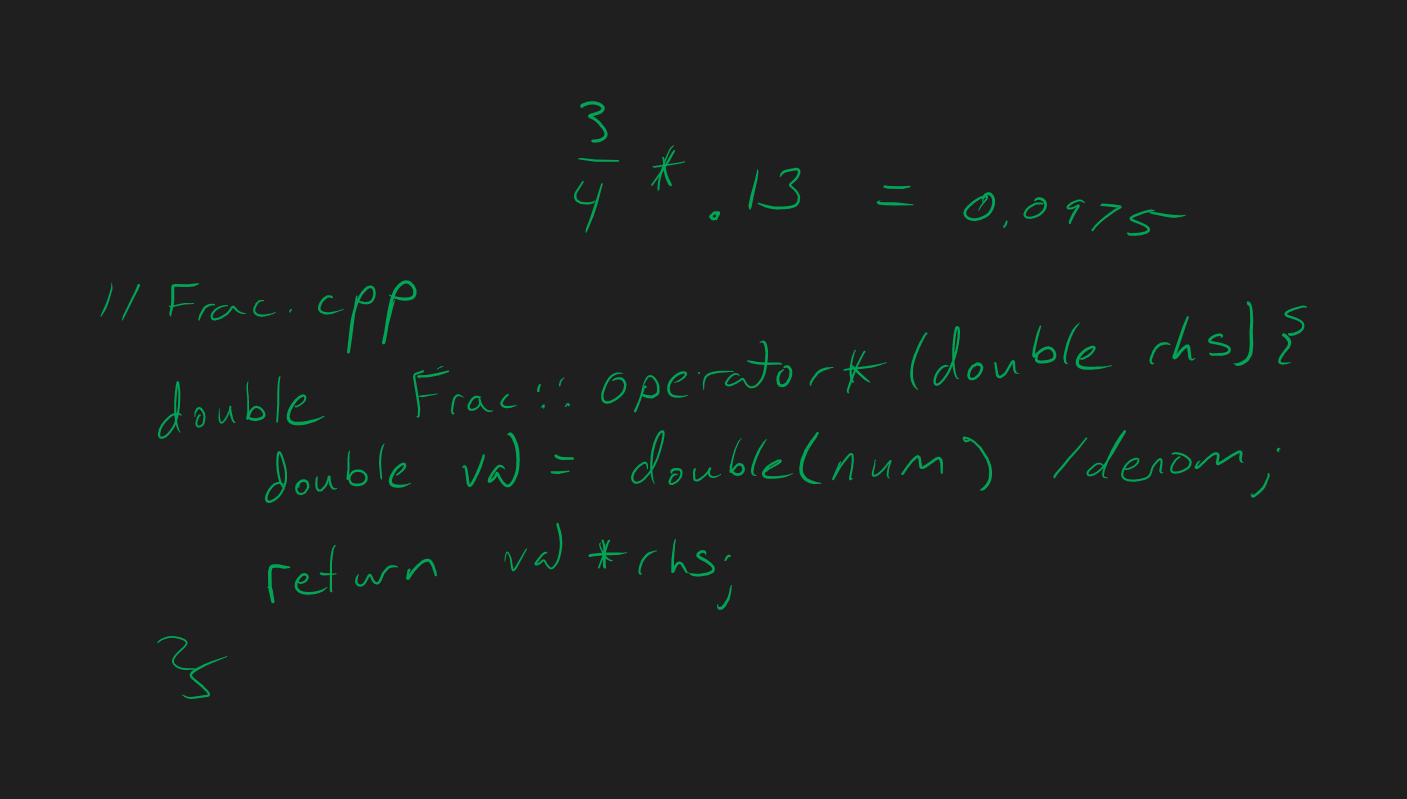 3/4 * .13 = 0.0975
// Frac.cpp
double Frac::operator*(double rhs){
double val = double(num) /denom;
return val *rhs;
}